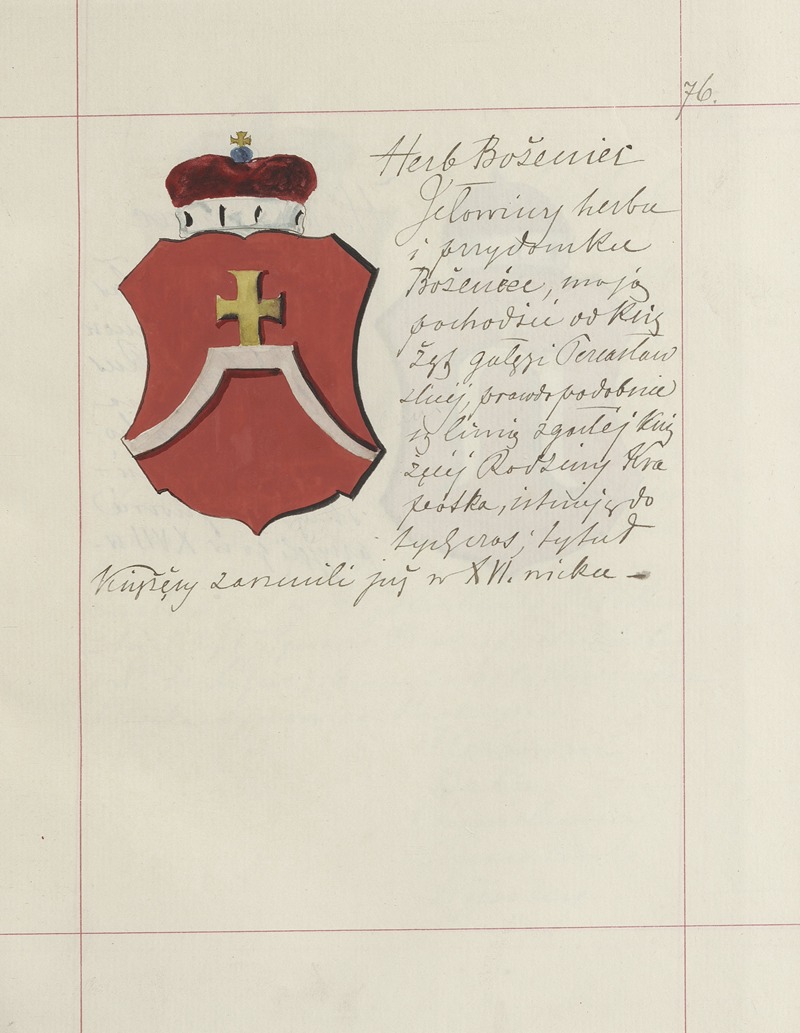 76.
Herb Boženiec
Jełowiccy herbu
i przydomku
Boženiec, mają
pochodzić od Kni
żąt gałęzi Perejasław
skiej, prawdopodobnie
są linią zgasłej Kni
żęcej Rodziny Kro
potka, istnieją do
tychczas; tytuł
Kniężęcy zarzucili już w XVI. wieku —